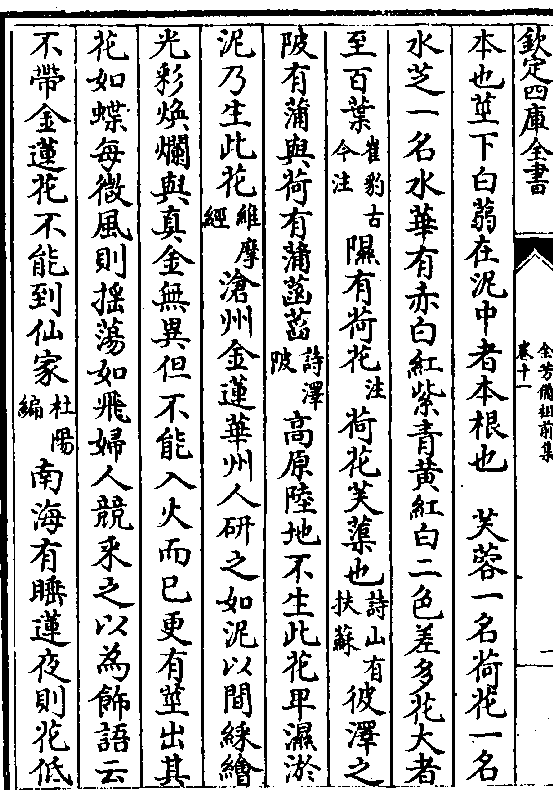 欽定四庫全書
全芳備祖前集
卷十一
二
本也莖下白蒻在泥中者本根也　芙蓉一名荷花一名
水芝一名水華有赤白紅紫青黄紅白二色差多花大者
至百葉崔豹古今注隰有荷花注荷花芙蕖也詩山有扶蘇彼澤之
陂有蒲與荷有蒲菡萏詩澤陂高原陸地不生此花卑濕淤
泥乃生此花維摩經滄州金蓮華州人研之如泥以間綵繪
光彩焕爛與真金無異但不能入火而已更有莖出其
花如蝶每微風則揺蕩如飛婦人競采之以為飾語云
不帶金蓮花不能到仙家杜陽編南海有睡蓮夜則花低